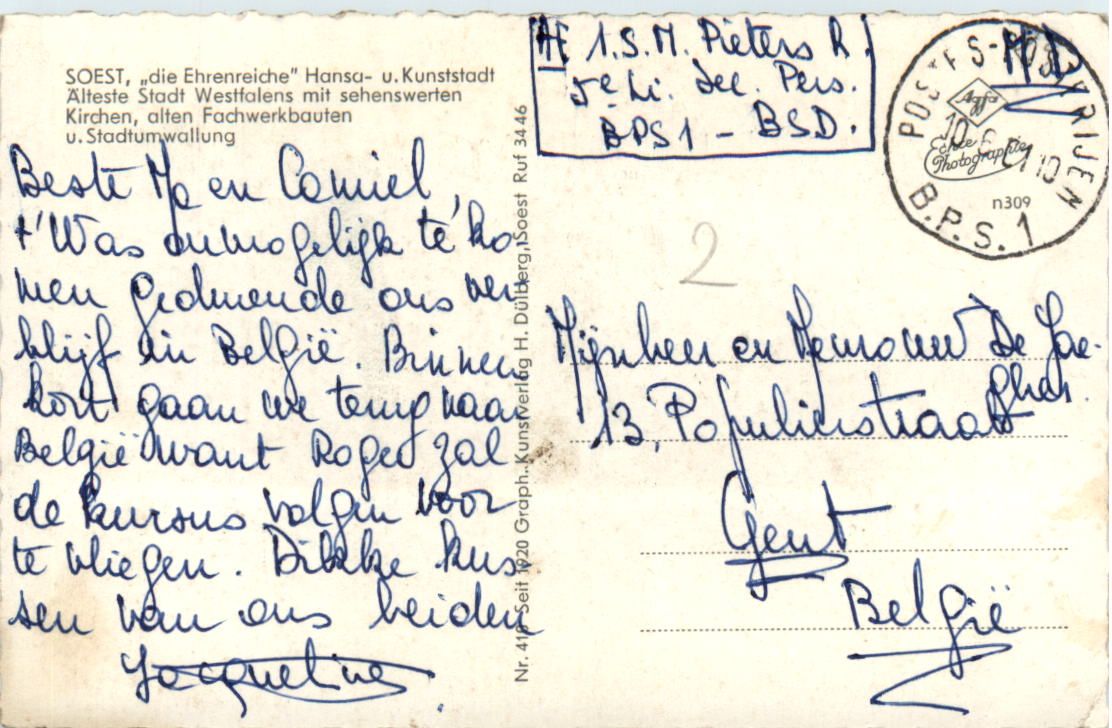 SOEST, „die Ehrenreiche” Hansa- u. Kunststadt
Älteste Stadt Westfalens mit sehenswerten
Kirchen, alten Fachwerkbauten
u. Stadtumwallung
Beste Ma en Camiel,
t'Was onmogelijk te ko-
men gedurende ons ver
blijf in België. Binnen
kort gaan we terug naar
België want Roger zal
de kursus volgen voor
te vliegen. Dikke kus-
sen van ons beiden
Jacqueline
Nr. 418 Seit 1920 Graph. Kunstverlag H. Dülberg, Soest Ruf 3446
1.S.M. Pieters R.
5e Li. Sec. Pers.
BPS1 - BSD.
POSTES-POSTERIJEN
B.P.S. 1
10
Agfa
Echte
Photographie
n309
2
Mijnheer en Mevrouw De Jae-
gher.
13, Populierstraat
Gent
België